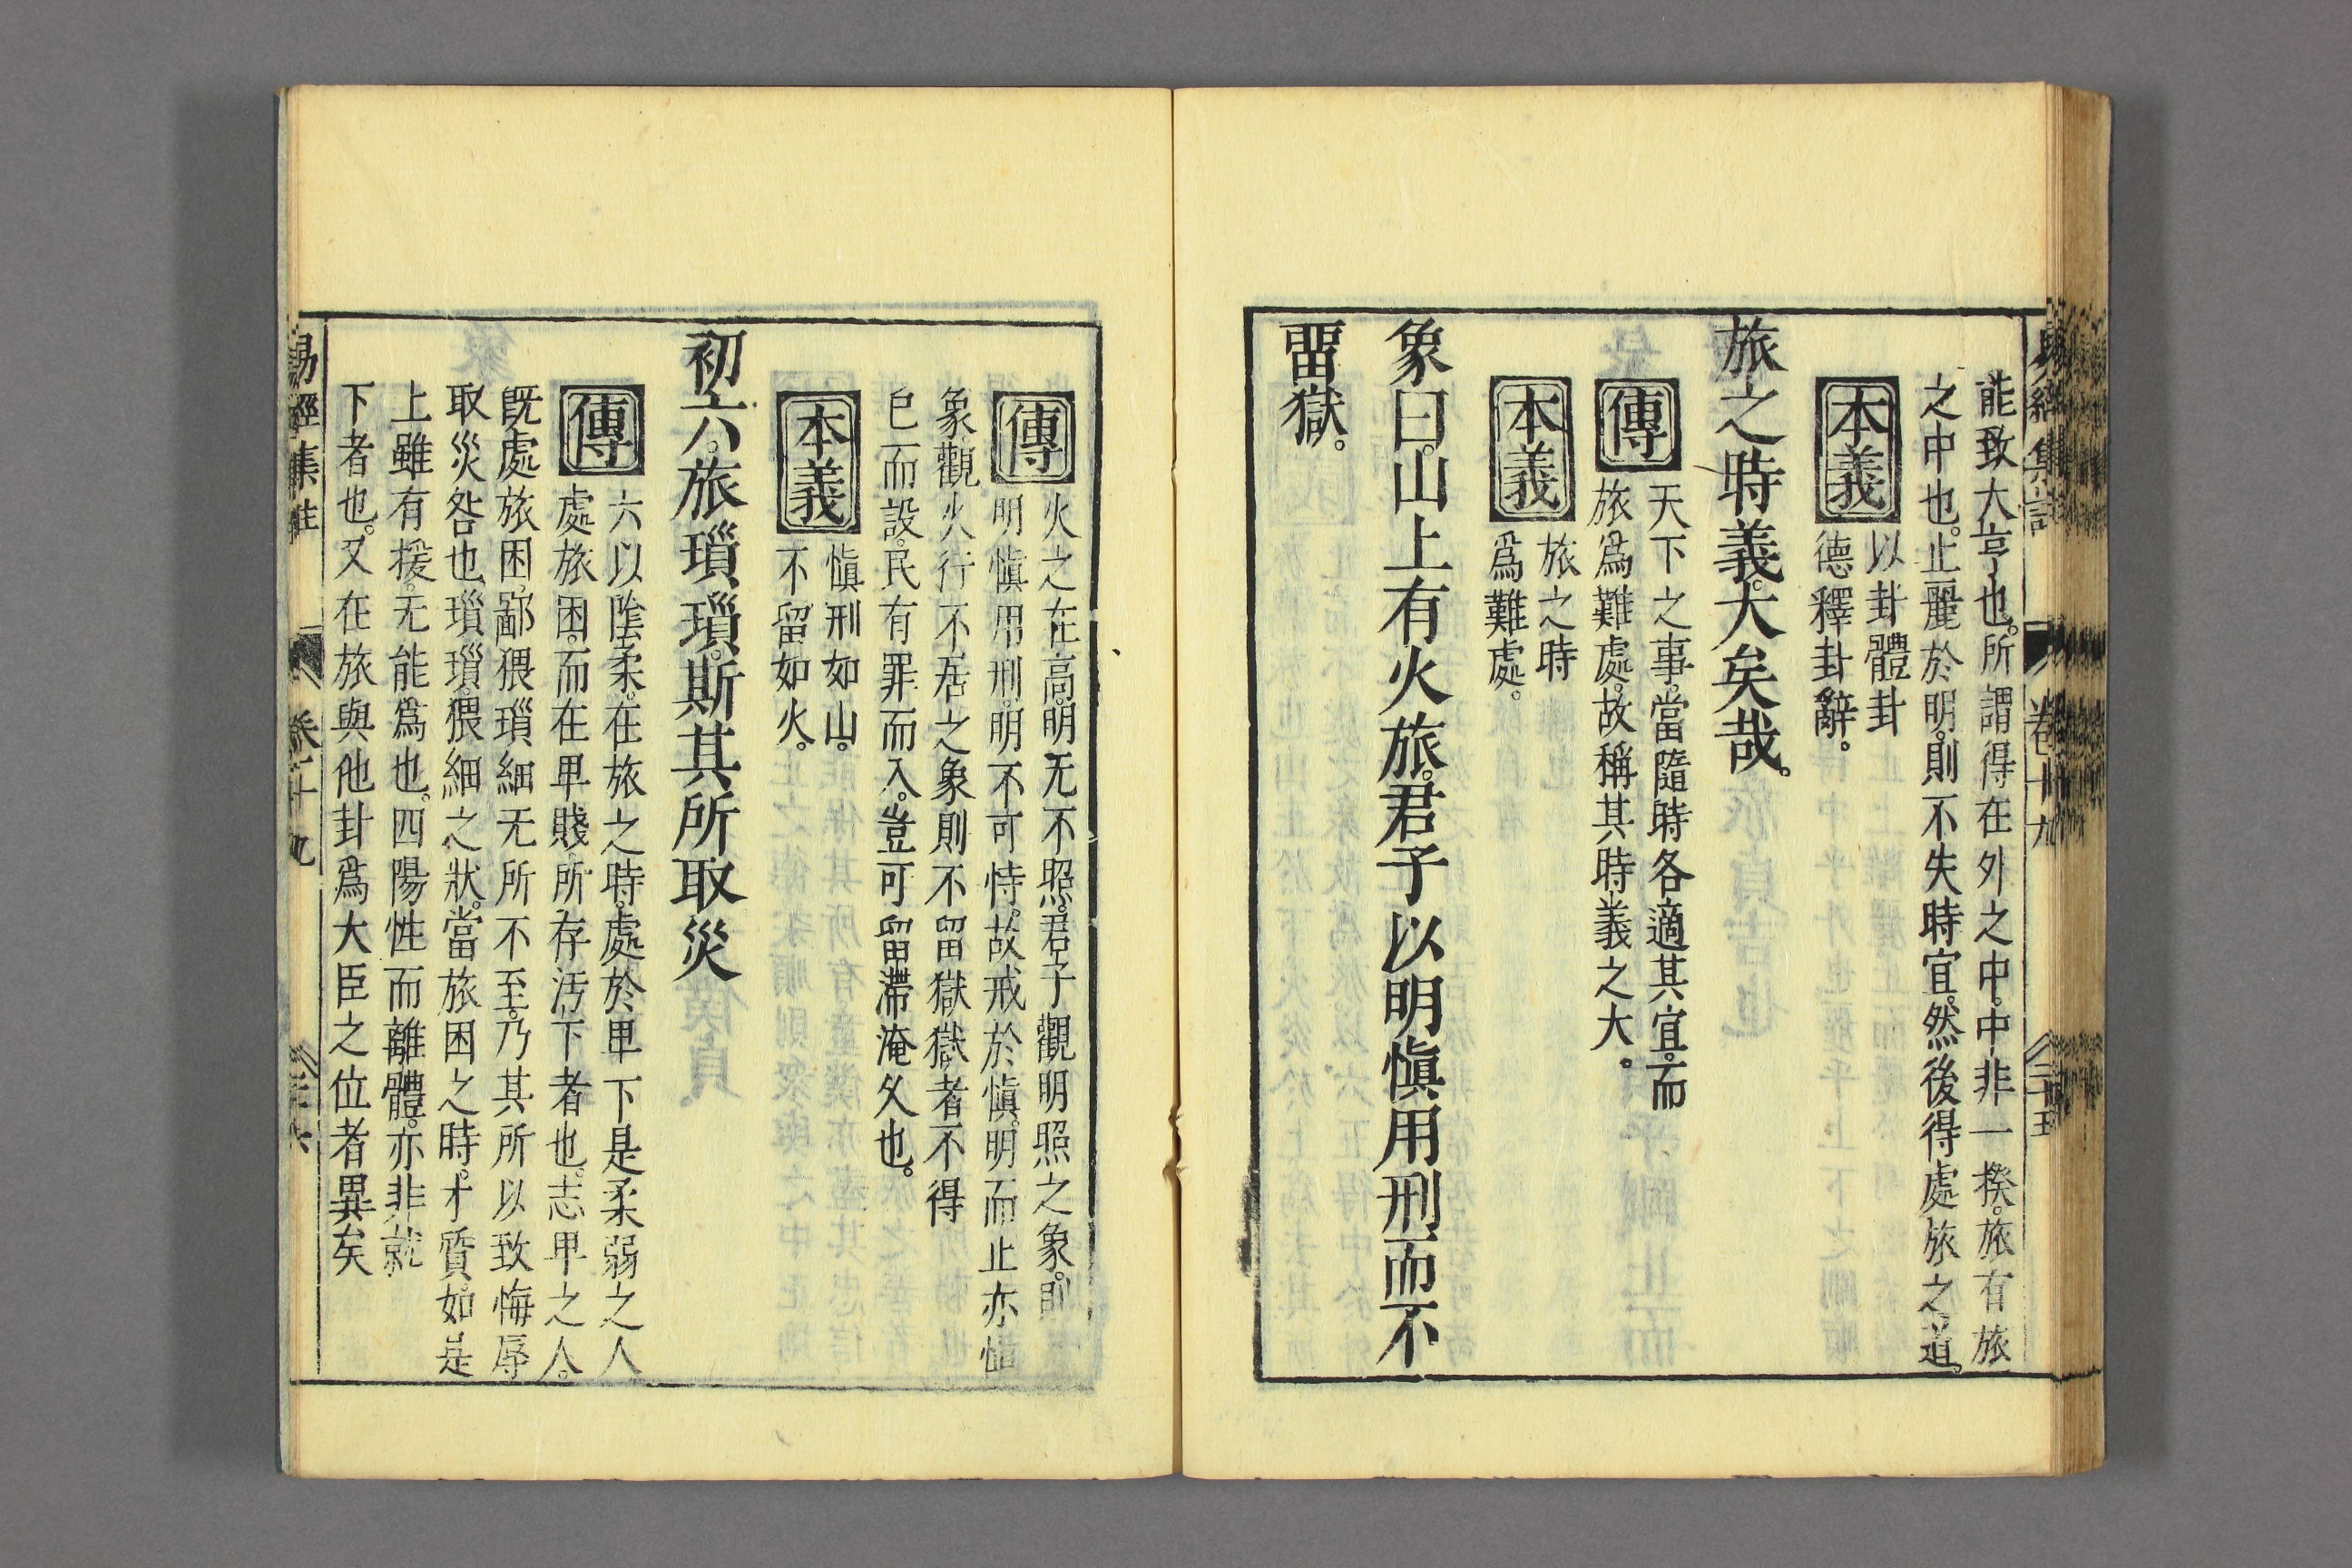 易經集註 卷十九 三十五
能致大亨也。所謂得在外之中。中非一揆。旅有旅
之中也。止麗於明。則不失時宜。然後得處旅之道。
本義
以卦體卦
德釋卦辭。
旅之時義。大矣哉。
傳
天下之事。當隨時各適其宜。而
旅爲難處。故稱其時義之大。
本義
旅之時
爲難處。
象曰。山上有火旅。君子以明愼用刑而不
畱獄。
傳
火之在高。明无不照。君子觀明照之象。則
明愼用刑。明不可恃。故戒於愼。明而止亦愼
象觀火行不居之象則不留獄獄者不得
已而設。民有罪而入。豈可留滯淹久也。
本義
愼刑如山。
不留如火。
初六。旅瑣瑣。斯其所取災
傳
六以陰柔。在旅之時。處於卑下是柔弱之人
處旅困。而在卑賤。所存汚下者也。志卑之人。
旣處旅困。鄙猥瑣細无所不至。乃其所以致悔辱
取災咎也。瑣瑣。猥細之狀。當旅困之時。才質如是
上雖有援。无能爲也。四陽性而離體。亦非就
下者也。又在旅與他卦爲大臣之位者異矣
易經集註 卷十九